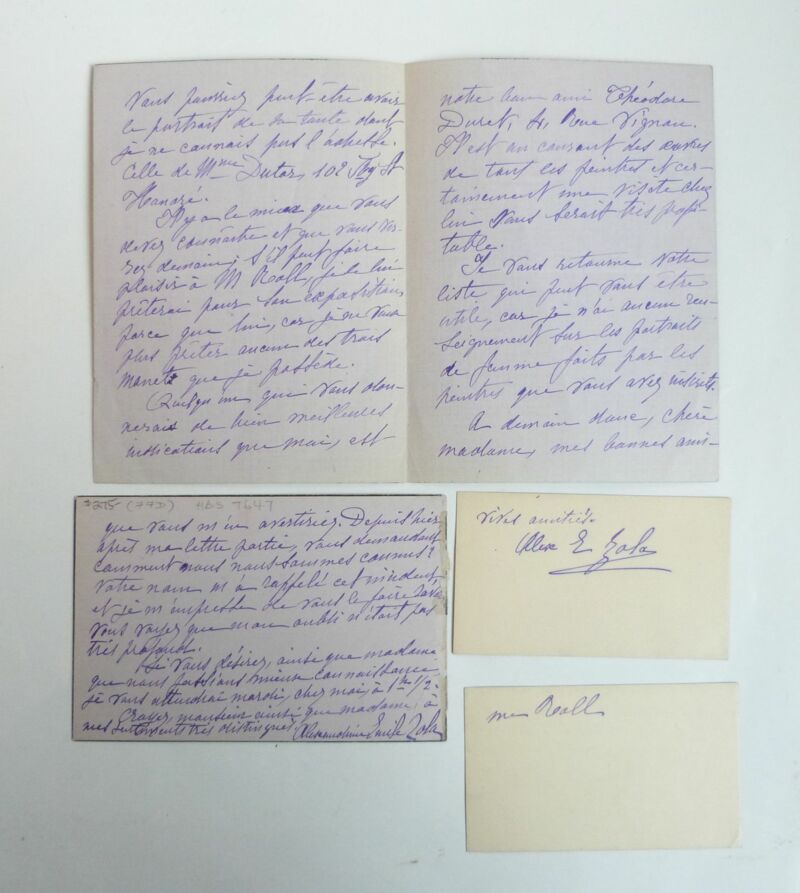 Vous pourriez peut-être avoir
le portrait de sa tante dont
je ne connais pas l'adresse.
Celle de Mme Dutar, 102 Fbg St
Honoré.
Il y a le mien que vous
devez connaître et que vous ver-
rez demain; s'il peut faire
plaisir à M Roll, je le lui
prêterai pour son exposition,
parce que lui, car je ne veux
plus prêter aucun des trois
Manets que je possède.
Quelqu'un qui vous don-
nerait de bien meilleures
indications que moi, est
notre bon ami Théodore
Duret, 4, Rue Vignon.
Il est au courant des œuvres
de tout les peintres et cer-
tainement une visite chez
lui vous serait très profi-
table.
Je vous retourne votre
liste qui peut vous être
utile, car je n'ai aucun ren-
seignement sur les portraits
de femme faits par les
peintres que vous avez inscrits.
A demain donc, chère
madame, mes bonnes ami-
$275 (77D) HDS 7647
que vous m'en avertiriez. Depuis hier
après ma lettre partie, vous demandant
comment nous nous sommes connus?
Votre nom m'a rappelé cet incident
et je m'empresse de vous le faire
Vous voyez que mon oubli n'était pas
très profond.
Si vous désirez, ainsi que madame
que nous fassions mieux connaissance
je vous attendrai mardi, chez moi, à 1/2.
Croyez, monsieur ainsi que madame, à
mes sentiments très distingués. Alexandrine Emile Zola
vives amitiés.
Alex E Zola
Roll